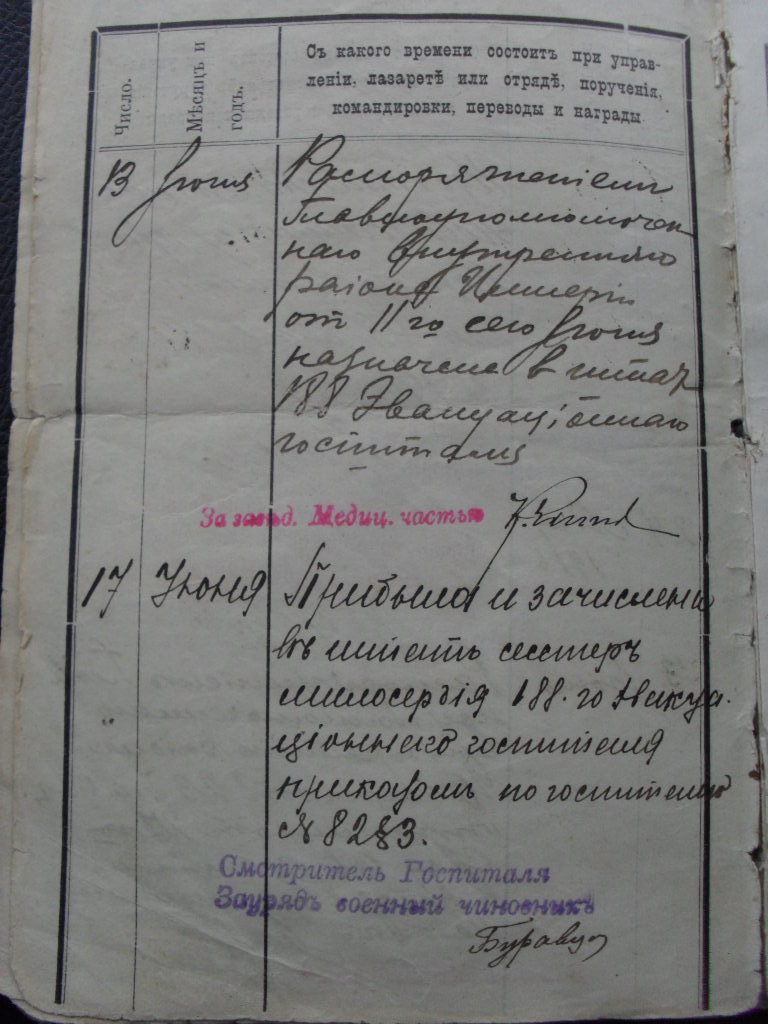 Число.
Мѣсяцъ и
годъ.
Съ какого времени состоитъ при управ-
леніи, лазаретѣ или отрядѣ, порученія,
командировки, переводы и награды
13 Іюня Распоряженіем
Главноуполномочен
наго Внутренняго
раіона Имперіи
от 11го сего Іюня
назначена в штат
188 Эвакуаціоннаго
госпиталя
За завѣд. Медиц. частью
17 Іюня Прибыла и зачислена
въ штатъ сестеръ
милосердія 188.го Эвакуа-
ціоннаго госпиталя
приказомъ по госпиталю
№ 8283.
Смотритель Госпиталя
Зaурядъ военный чиновникъ